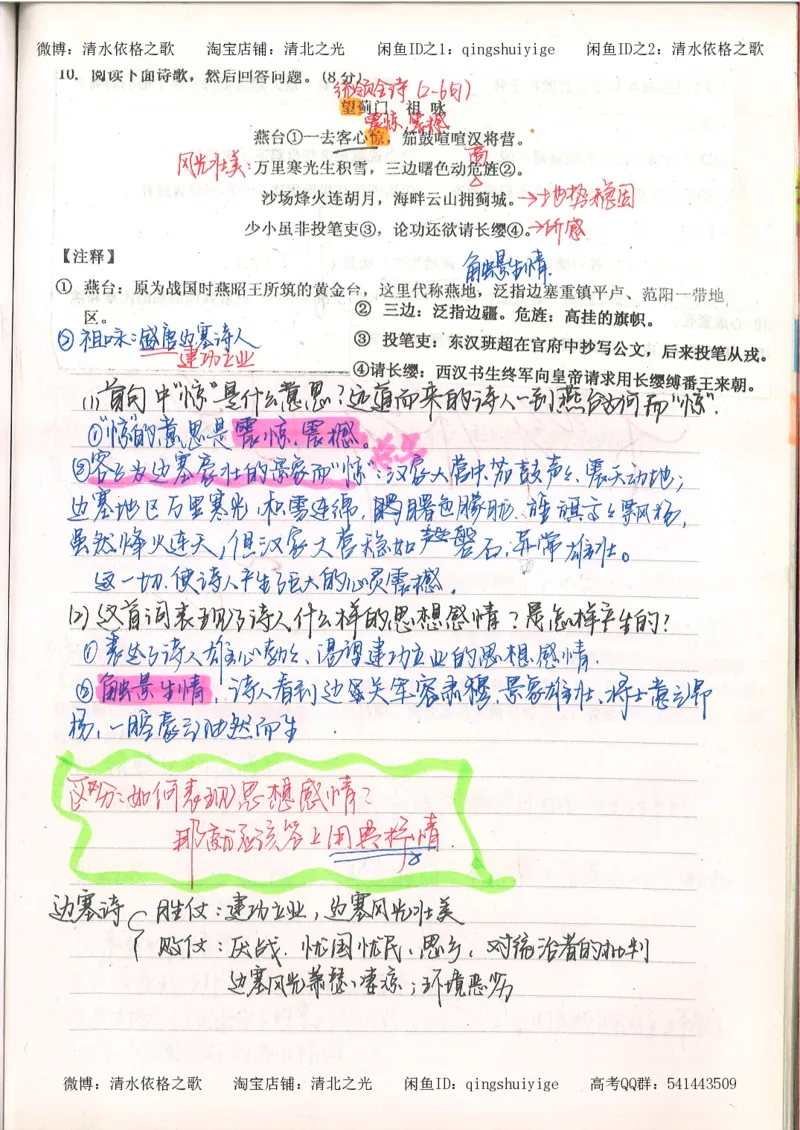 微博：清水依格之歌 淘宝店铺：清北之光 闲鱼ID之1：qingshuiyige 闲鱼ID之2：清水依格之歌
10. 阅读下面诗歌，然后回答问题。(8分)
统领全诗(2-6句)
望蓟门 祖 咏
震惊、震撼
燕台①一去客心惊，笳鼓喧喧汉将营。
风光壮美：万里寒光生积雪，三边曙色动危旌②。
高
沙场烽火连胡月，海畔云山拥蓟城。→地势稳固
少小虽非投笔吏③，论功还欲请长缨④。→所感
触景生情
【注释】
① 燕台：原为战国时燕昭王所筑的黄金台，这里代称燕地，泛指边塞重镇平卢、范阳一带地
区。
② 三边：泛指边疆。危旌：高挂的旗帜。
② 祖咏：盛唐边塞诗人
建功立业
③ 投笔吏：东汉班超在官府中抄写公文，后来投笔从戎。
④请长缨：西汉书生终军向皇帝请求用长缨缚番王来朝。
(1)首句中“惊”是什么意思？远道而来的诗人一到燕台为何而“惊”.
①“惊”的意思是震惊、震撼。
②客心为边塞壮的景象而“惊”：汉家大营中笳鼓声声、震天动地；
总写
边塞地区万里寒光，积雪连绵，曙色朦胧，旌旗高高飘扬，
虽然烽火连天，但汉家大营稳如磐石，异常雄壮。
这一切使诗人产生强大的心灵震撼。
(2)这首词表现了诗人什么样的思想感情？是怎样产生的？
①表达了诗人雄心勃勃、渴望建功立业的思想感情.
②触景生情，诗人看到边关军容肃穆，景象雄壮，将士意气昂
扬，一腔豪气油然而生
区分：如何表现思想感情？
那就应该答上用典抒情.
边塞诗 胜仗：建功立业，边塞风光壮美
败仗：厌战、忧国忧民、思乡、对统治者的批判
边塞风光萧瑟、凄凉；环境恶劣
微博：清水依格之歌 淘宝店铺：清北之光 闲鱼ID：qingshuiyige 高考QQ群：541443509